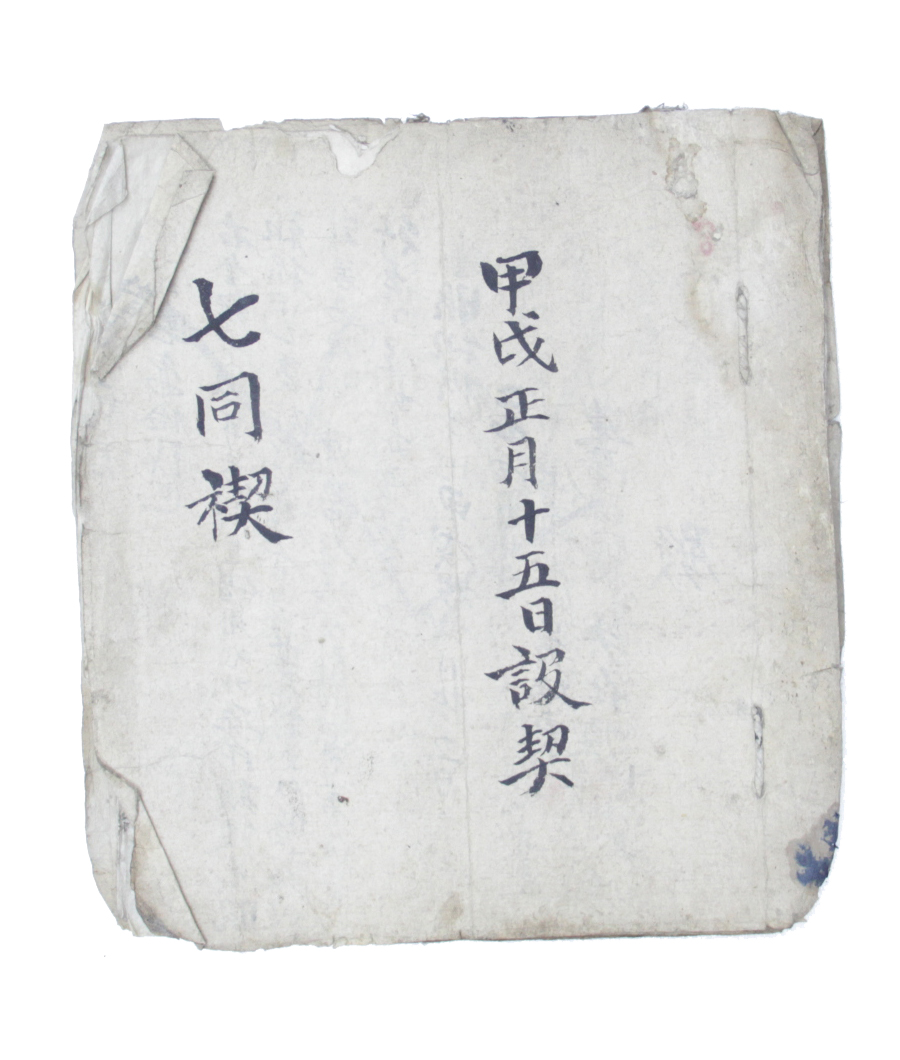 甲戌正月十五日設契
七同禊